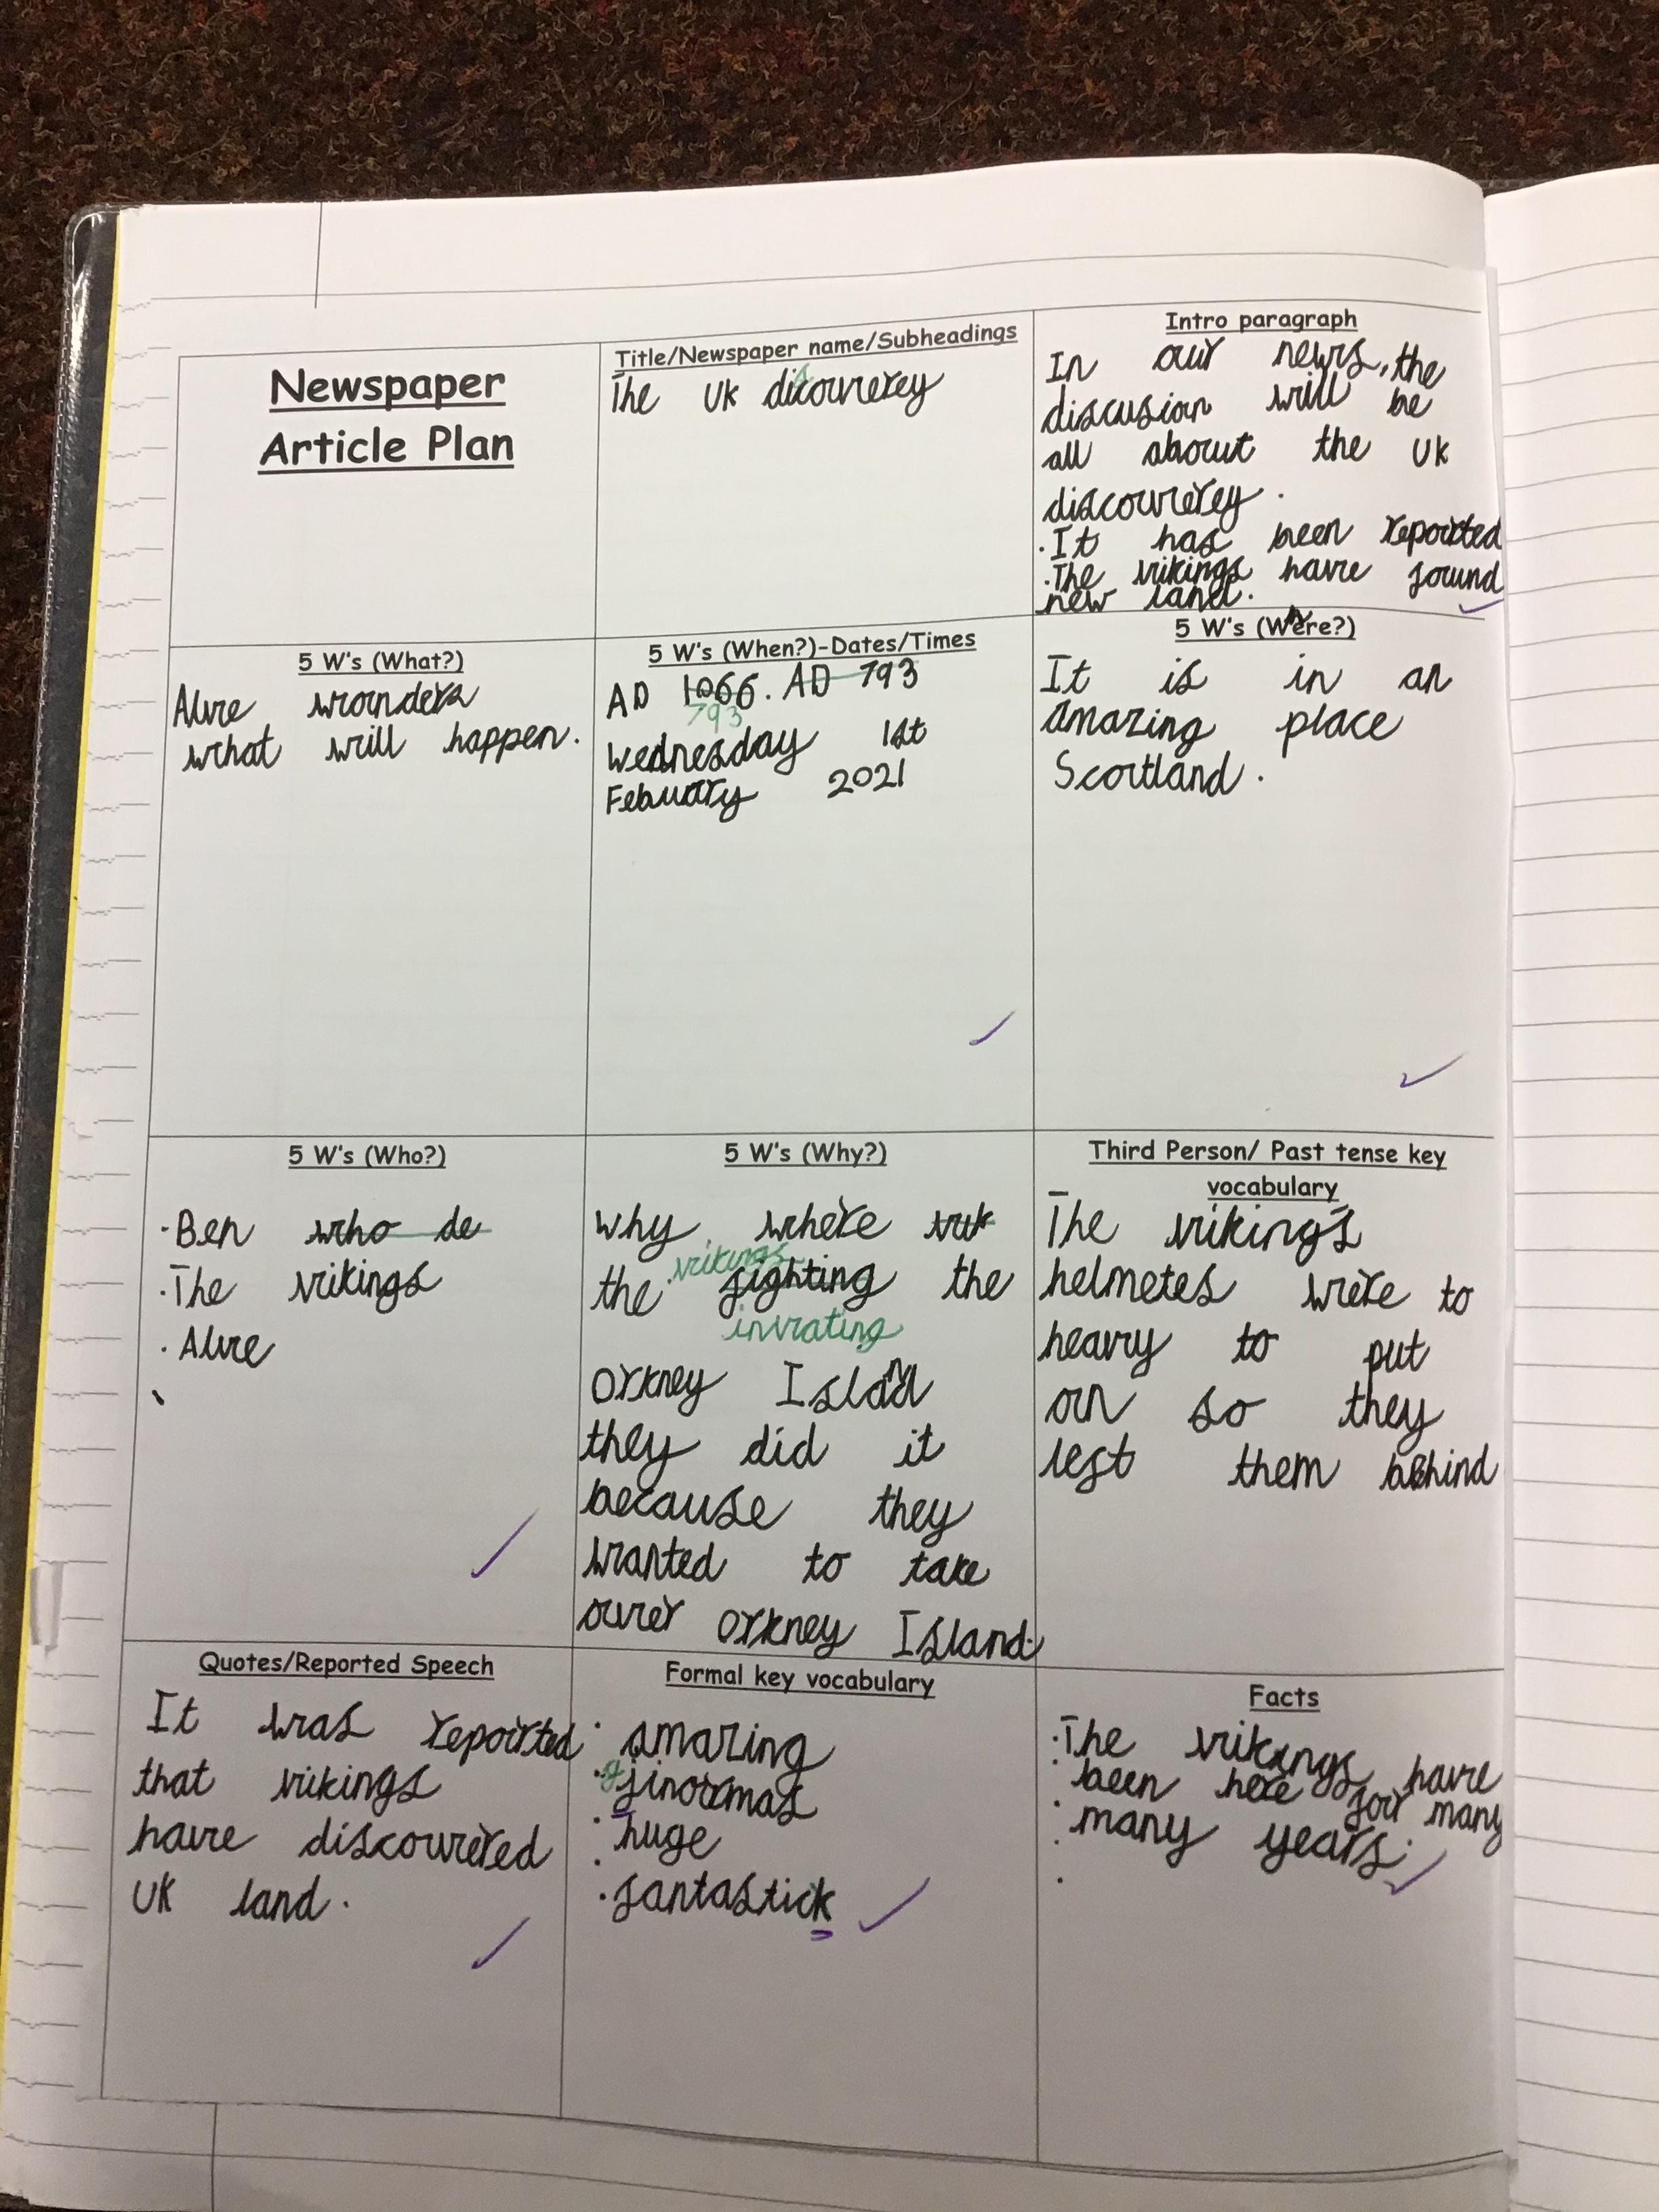 Newspaper
Article Plan
Title/Newspaper name/Subheadings
The UK discoverey
Intro paragraph
In our news, the
discusion will be
all about the UK
discoverey.
·It has been reported
·The vikings have found
new land.
5 W's (What?)
Alve wonders
what will happen.
5 W's (When?)-Dates/Times
AD 1066. AD 793
793
Wednesday 1st
Febuary 2021
5 W's (Where?)
It is in an
amazing place
Scotland.
5 W's (Who?)
·Ben who de
·The vikings
·Alve
5 W's (Why?)
why where vik
the vikings fighting the
invating
Orkney Island
they did it
because they
wanted to take
over Orkney Island.
Third Person/ Past tense key
vocabulary
The viking's
helmetes were to
heavy to put
on so they
left them behind
Quotes/Reported Speech
It was reported
that vikings
have discovered
UK land.
Formal key vocabulary
· amazing
· gjinormas
· huge
· fantastick
Facts
·The vikings have
been here for many
many years.